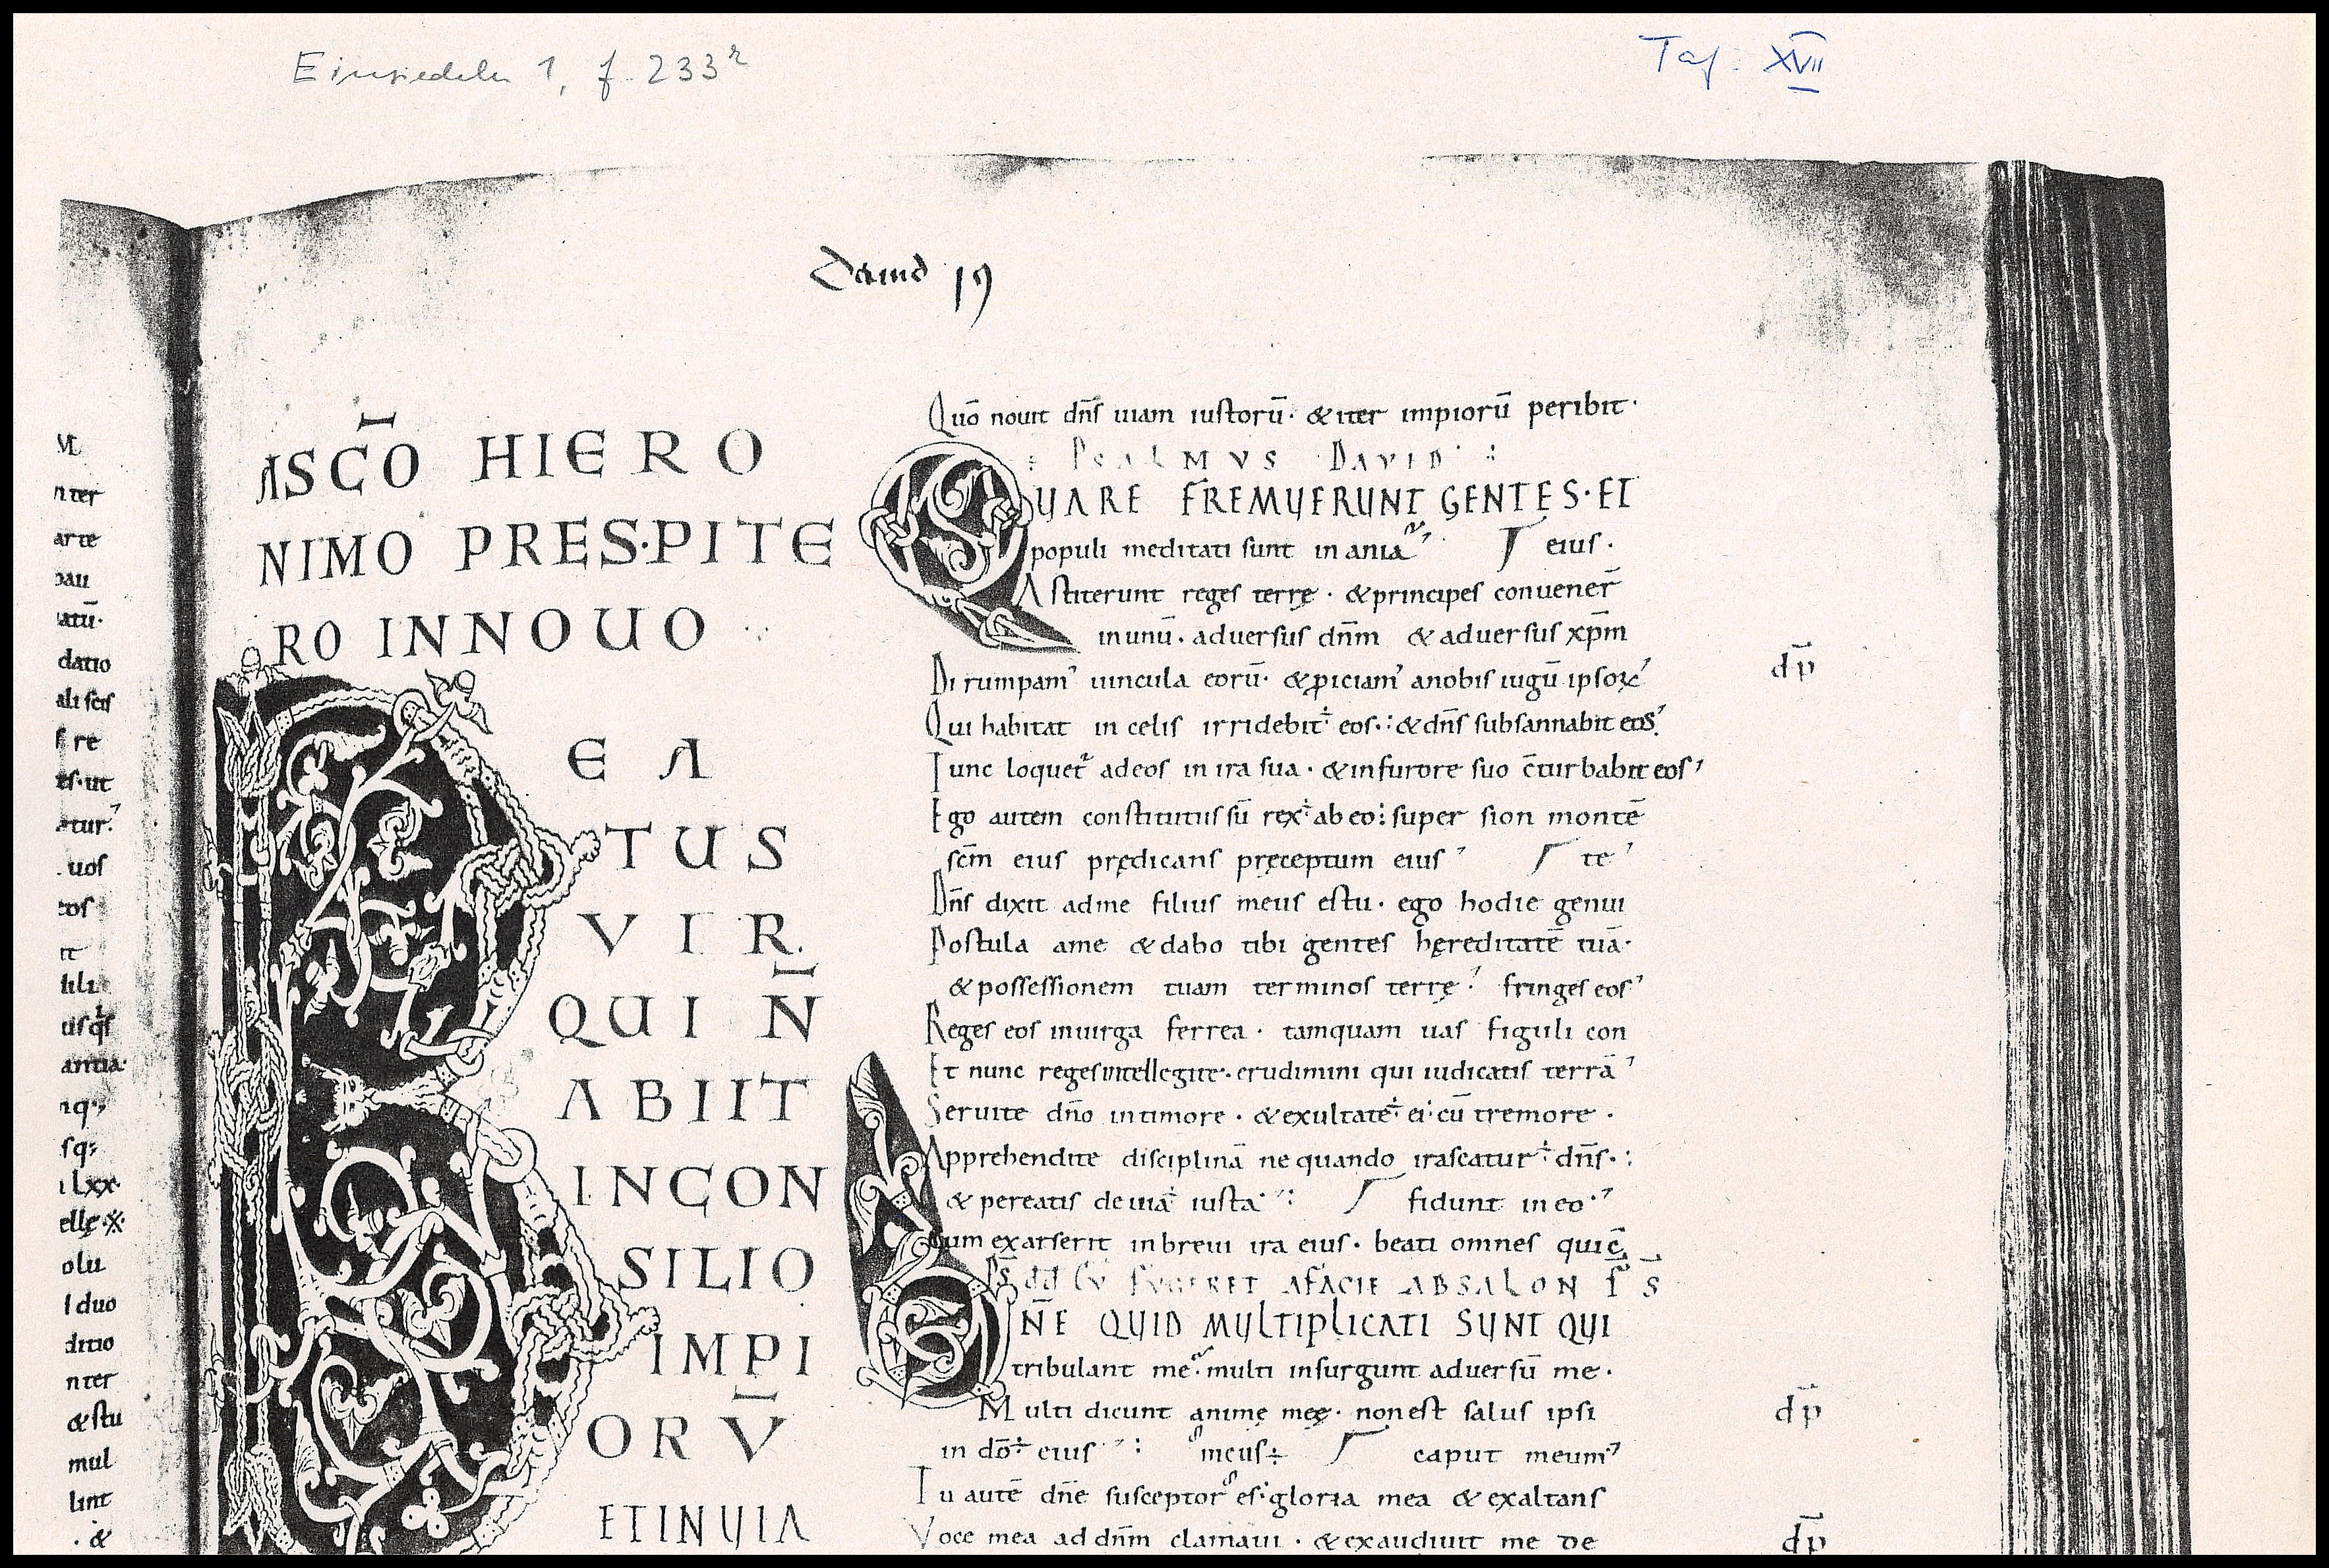 Einsiedeln 1, f. 233r
Taf. XVII
David 19
M
nter
arte
pau
atū.
datio
ali scis
re
es. ut
etur.
uos
eos
it
usqs
antia
nq;
sq;
i lxx
elle ※
olu
duo
ditio
nter
& stu
mul
lint
. &
ASC̄O HIERO
NIMO PRESPITE
RO INNOUO
EA
TUS
VIR
QUI N̄
ABIIT
INCON
SILIO
IMPI
ORV̄
ETINUIA
Quō nouit dn̄s uiam iustorū. & iter impiorū peribit.
PSALMVS DAVID
QUARE FREMUERUNT GENTES. ET
populi meditati sunt inania eius.
Astiterunt reges terrę. & principes conuener̄
inunū. aduersus dn̄m & aduersus xp̄m
Dirumpam' uincula eorū. & ꝓiciam' anobis iugū ipsoꝝ
dp̄
Qui habitat in celis irridebit ÷ eos : & dn̄s subsannabit eos.
Tunc loquet' adeos in ira sua. & infurore suo c̄turbabit eos
Ego autem constitutus sū rex ÷ ab eo : super sion montē
sc̄m eius prędicans pręceptum eius te
Dn̄s dixit adme filius meus estu. ego hodie genui
Postula ame & dabo tibi gentes hęreditatē tuā.
& possessionem tuam terminos terrę fringes eos
Reges eos inuirga ferrea. tamquam uas figuli con
Et nunc reges intellegite. erudimini qui iudicatis terrā
Seruite dn̄o intimore. & exultate ÷ ei : cū tremore.
Apprehendite disciplinā nequando irascatur ÷ dn̄s :
& pereatis deuia iusta fidunt in eo
Cum exarserit inbreui ira eius. beati omnes qui c̄
PS̄ dd CV̄ FUGERET AFACIE ABSALON
DN̄E QUID MULTIPLICATI SUNT QUI
tribulant me. multi insurgunt aduersū me.
Multi dicunt animę meę. non est salus ipsi
dp̄
in dō ÷ eius : meus ÷ caput meum
Tu autē dn̄e susceptor es gloria mea & exaltans
Voce mea ad dn̄m clamaui. & exaudiuit me de
dp̄